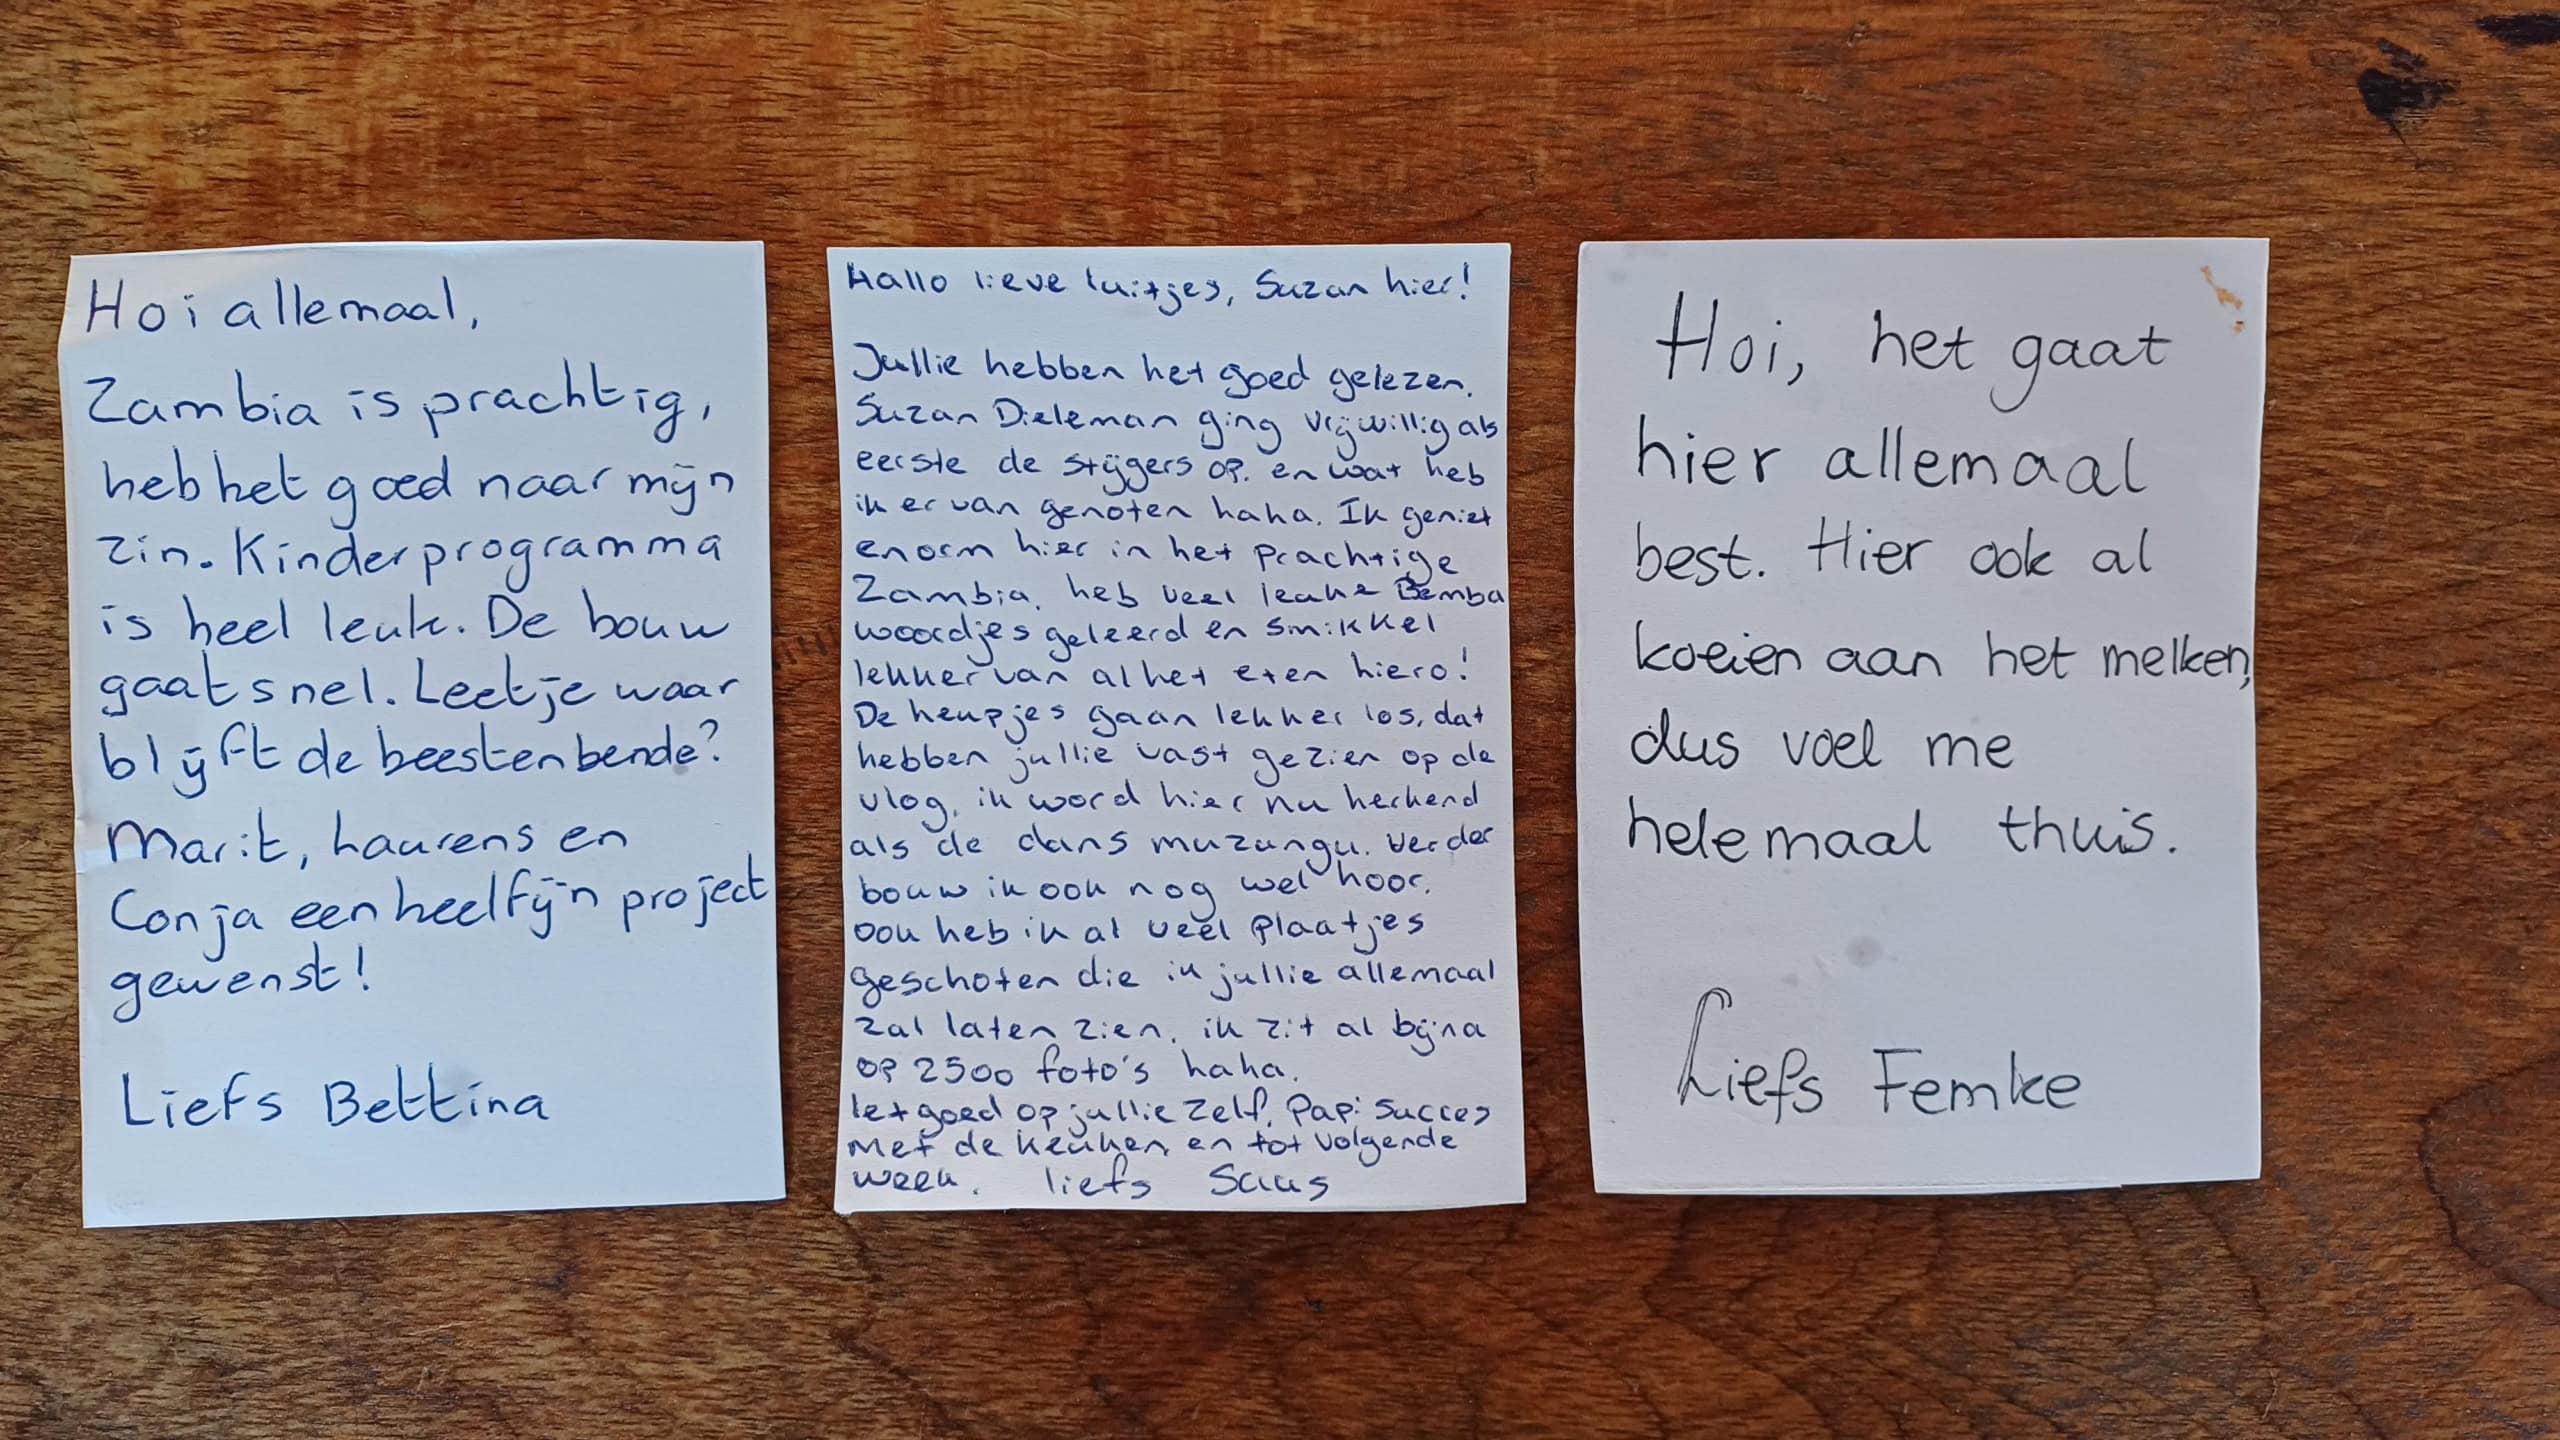 Hoi allemaal,
Zambia is prachtig,
heb het goed naar mijn
zin. Kinderprogramma
is heel leuk. De bouw
gaat snel. Leetje waar
blijft de beestenbende?
Marit, Laurens en
Conja een heel fijn project
gewenst!
Liefs Bettina
Hallo lieve luitjes, Suzan hier!
Jullie hebben het goed gelezen.
Suzan Dieleman ging vrijwillig als
eerste de stijgers op. en wat heb
ik er van genoten haha. Ik geniet
enorm hier in het prachtige
Zambia. heb veel leuke Bemba
woordjes geleerd en smikkel
lekker van al het eten hiero!
De heupjes gaan lekker los, dat
hebben jullie vast gezien op de
vlog. ik word hier nu herkend
als de dans muzungu. verder
bouw ik ook nog wel hoor.
ook heb ik al veel plaatjes
geschoten die ik jullie allemaal
zal laten zien. ik zit al bijna
op 2500 foto's haha.
let goed op jullie zelf. Papi succes
met de keuken en tot volgende
week. liefs Suus
Hoi, het gaat
hier allemaal
best. Hier ook al
koeien aan het melken,
dus voel me
helemaal thuis.
Liefs Femke